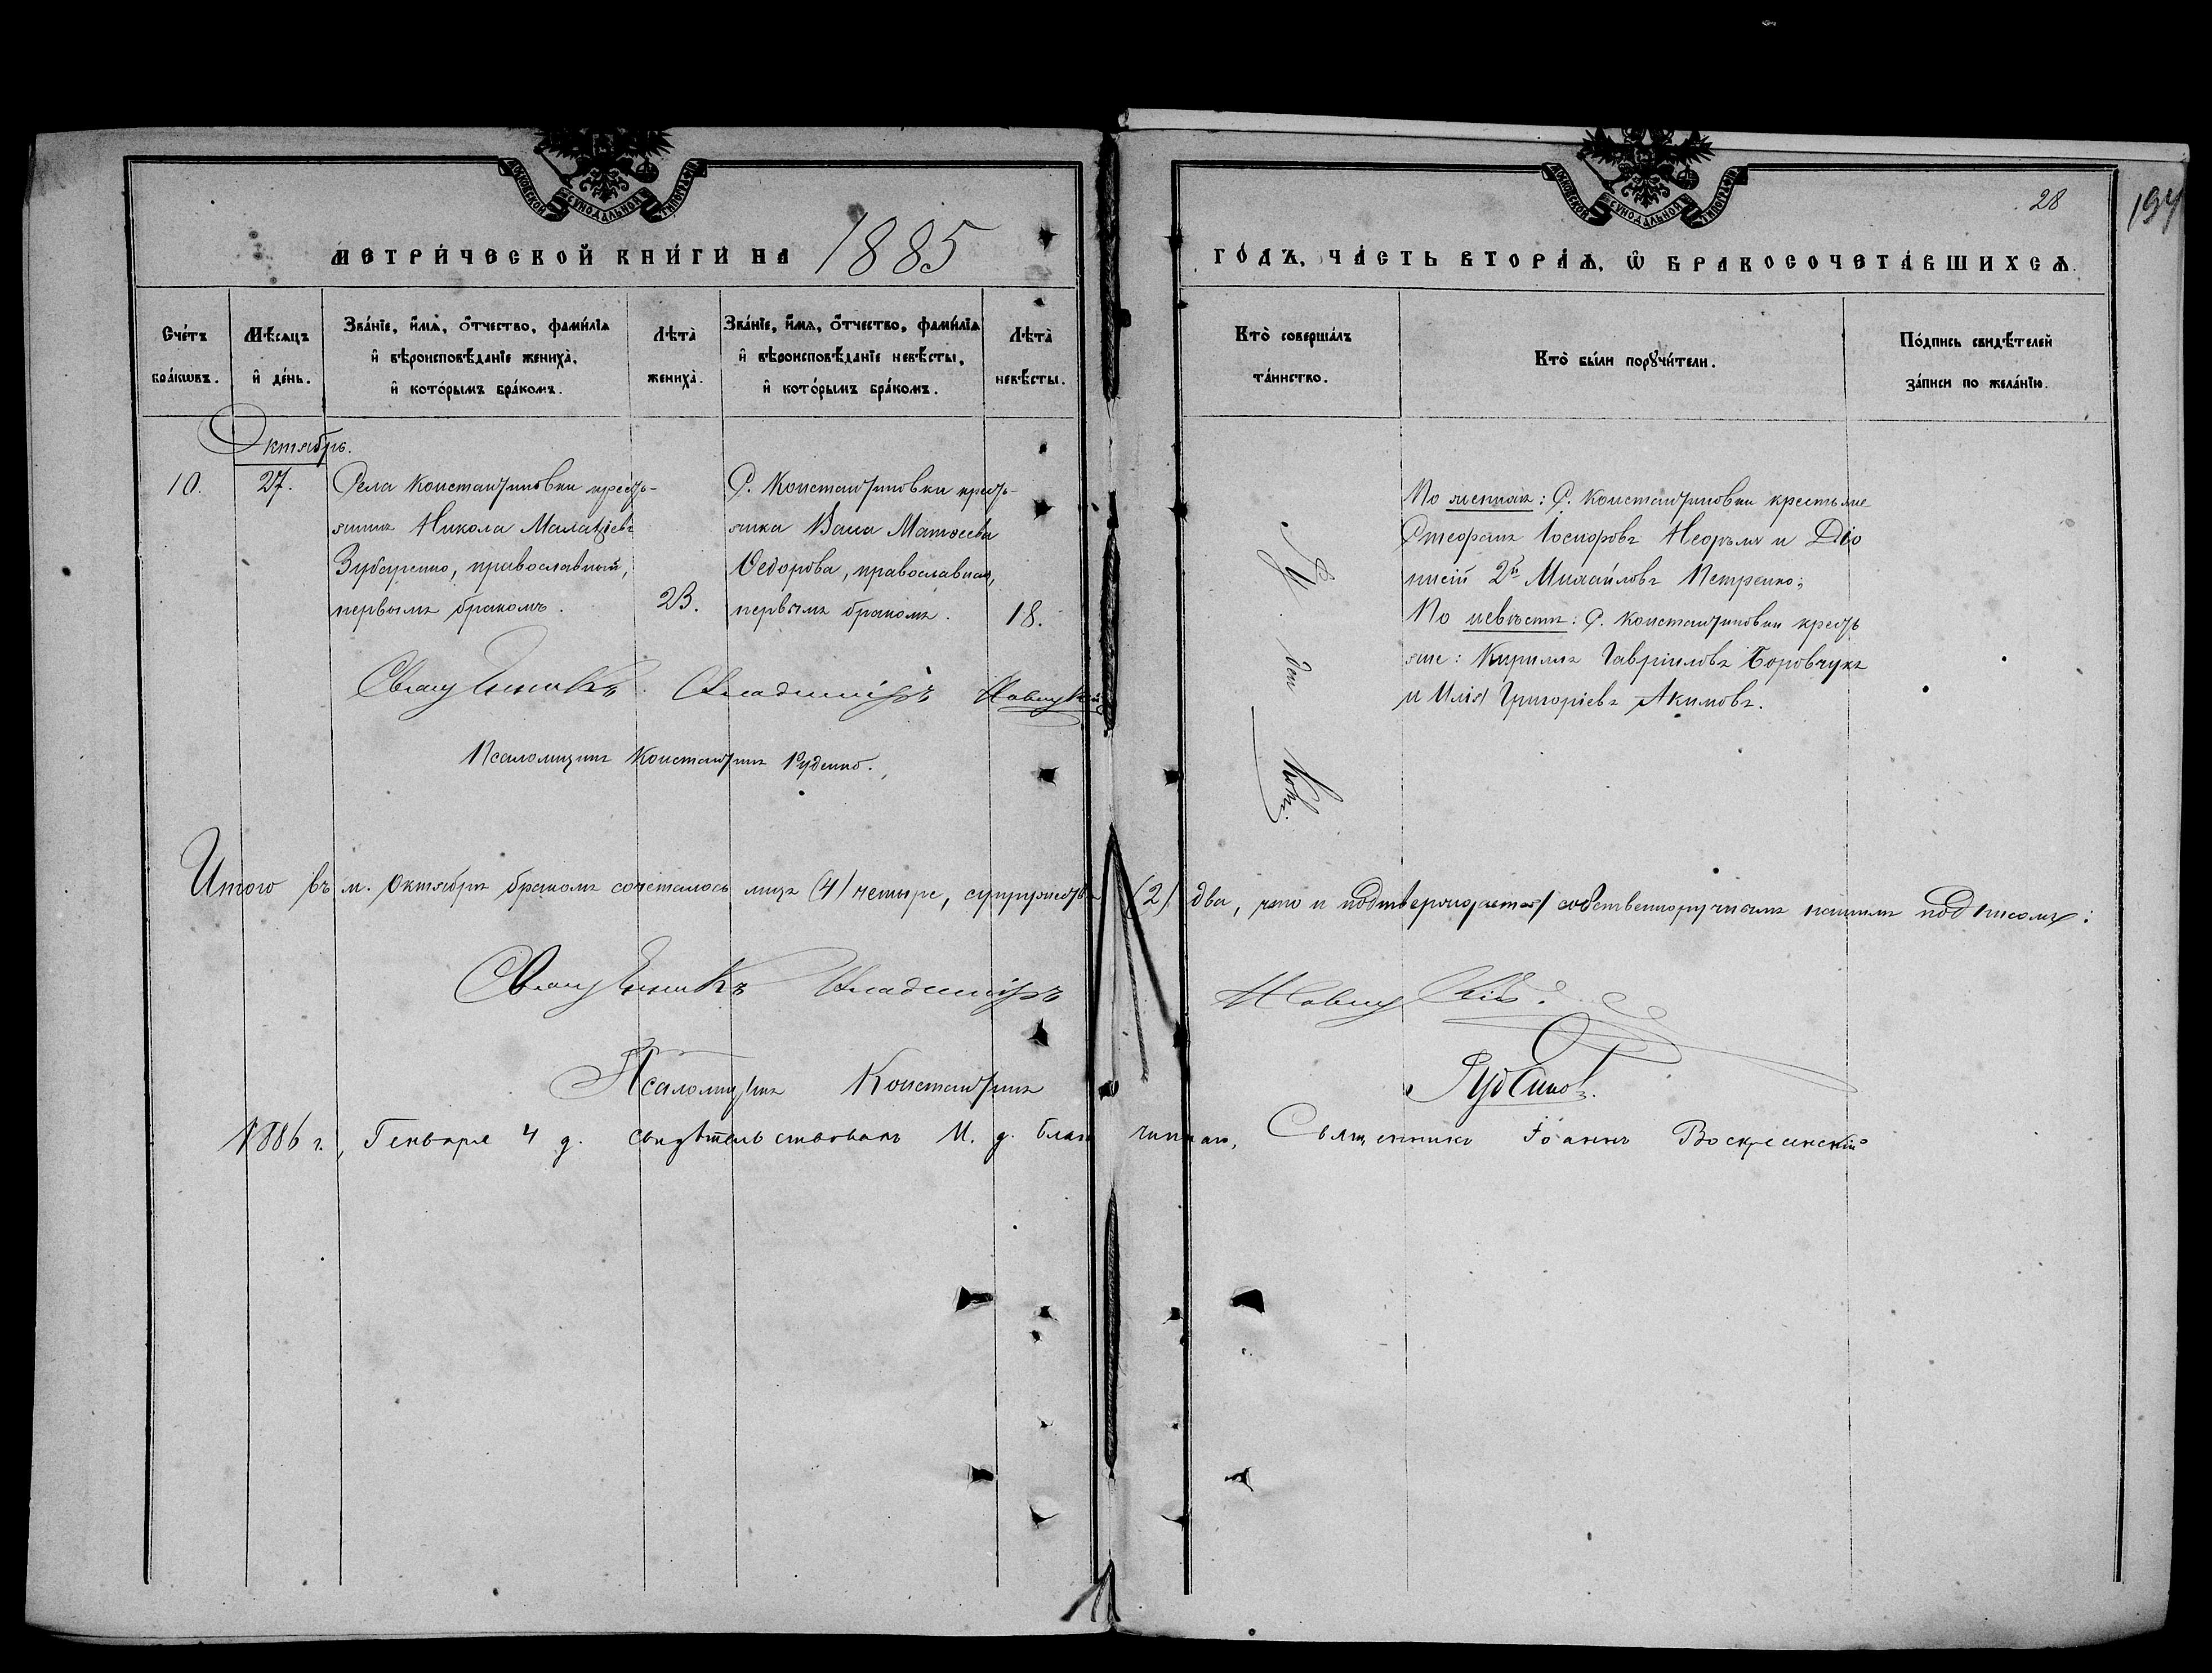 28
194
МОСКОВСКОЙ СѴНОДАЛЬНОЙ ТИПОГРАФІИ
МОСКОВСКОЙ СѴНОДАЛЬНОЙ ТИПОГРАФІИ
МЕТРИ́ЧЕСКОЙ КНИ́ГИ НА 1885
ГО́ДЪ, ЧА́СТЬ ВТОРА́Ѧ, Ѽ БРАКОСОЧЕТА́ВШИХСѦ.
Сче́тъ
бра́кѡвъ.
Мѣ́сяцъ
и҆ де́нь.
Зва́нїе, и҆́мѧ, о҆́тчество, фами́лїѧ
и҆ вѣроисповѣ́данїе жениха̀,
и҆ кото́рымъ бра́комъ.
Лѣта̀
жениха̀.
Зва́нїе, и҆́мѧ, о҆́тчество, фами́лїѧ
и҆ вѣроисповѣ́данїе невѣ́сты,
и҆ кото́рымъ бра́комъ.
Лѣта̀
невѣ́сты.
Кто̀ соверша́лъ
та́инство.
Кто̀ бы́ли порꙋчи́тели.
По́дпись свидѣ́телей
за́писи по жела́нїю.
Октябрь.
10.
27.
Села Константиновки кресть-
янинъ Никола
Зубаренко, православный,
первымъ бракомъ.
23.
С. Константиновки кресть-
янка Васса Матѳеева
Ѳедорова, православная,
первымъ бракомъ.
18.
По женихѣ: С. Константиновки крестьяне
Стефанъ Іосифовъ и Діо
нисій 2й Михайловъ Петренко;
По невѣстѣ: С. Константиновки кресть
яне: Кириллъ Гавріиловъ Боровчукъ
и Илія Григоріевъ Акимовъ.
Священникъ Владиміръ Новицкій
Псаломщикъ Константинъ Руденко.
Итого въ м. Октябрѣ бракомъ сочеталось лицъ (4) четыре, супружествъ (2) два, что и подтверждается собственноручнымъ нашимъ подписомъ:
Священникъ Владиміръ Новицкій.
Псаломщикъ Константинъ
1886 г., Генваря 4 д. свидѣтельствовалъ И. д. благочиннаго, Священникъ Іоаннъ Воскресенскій